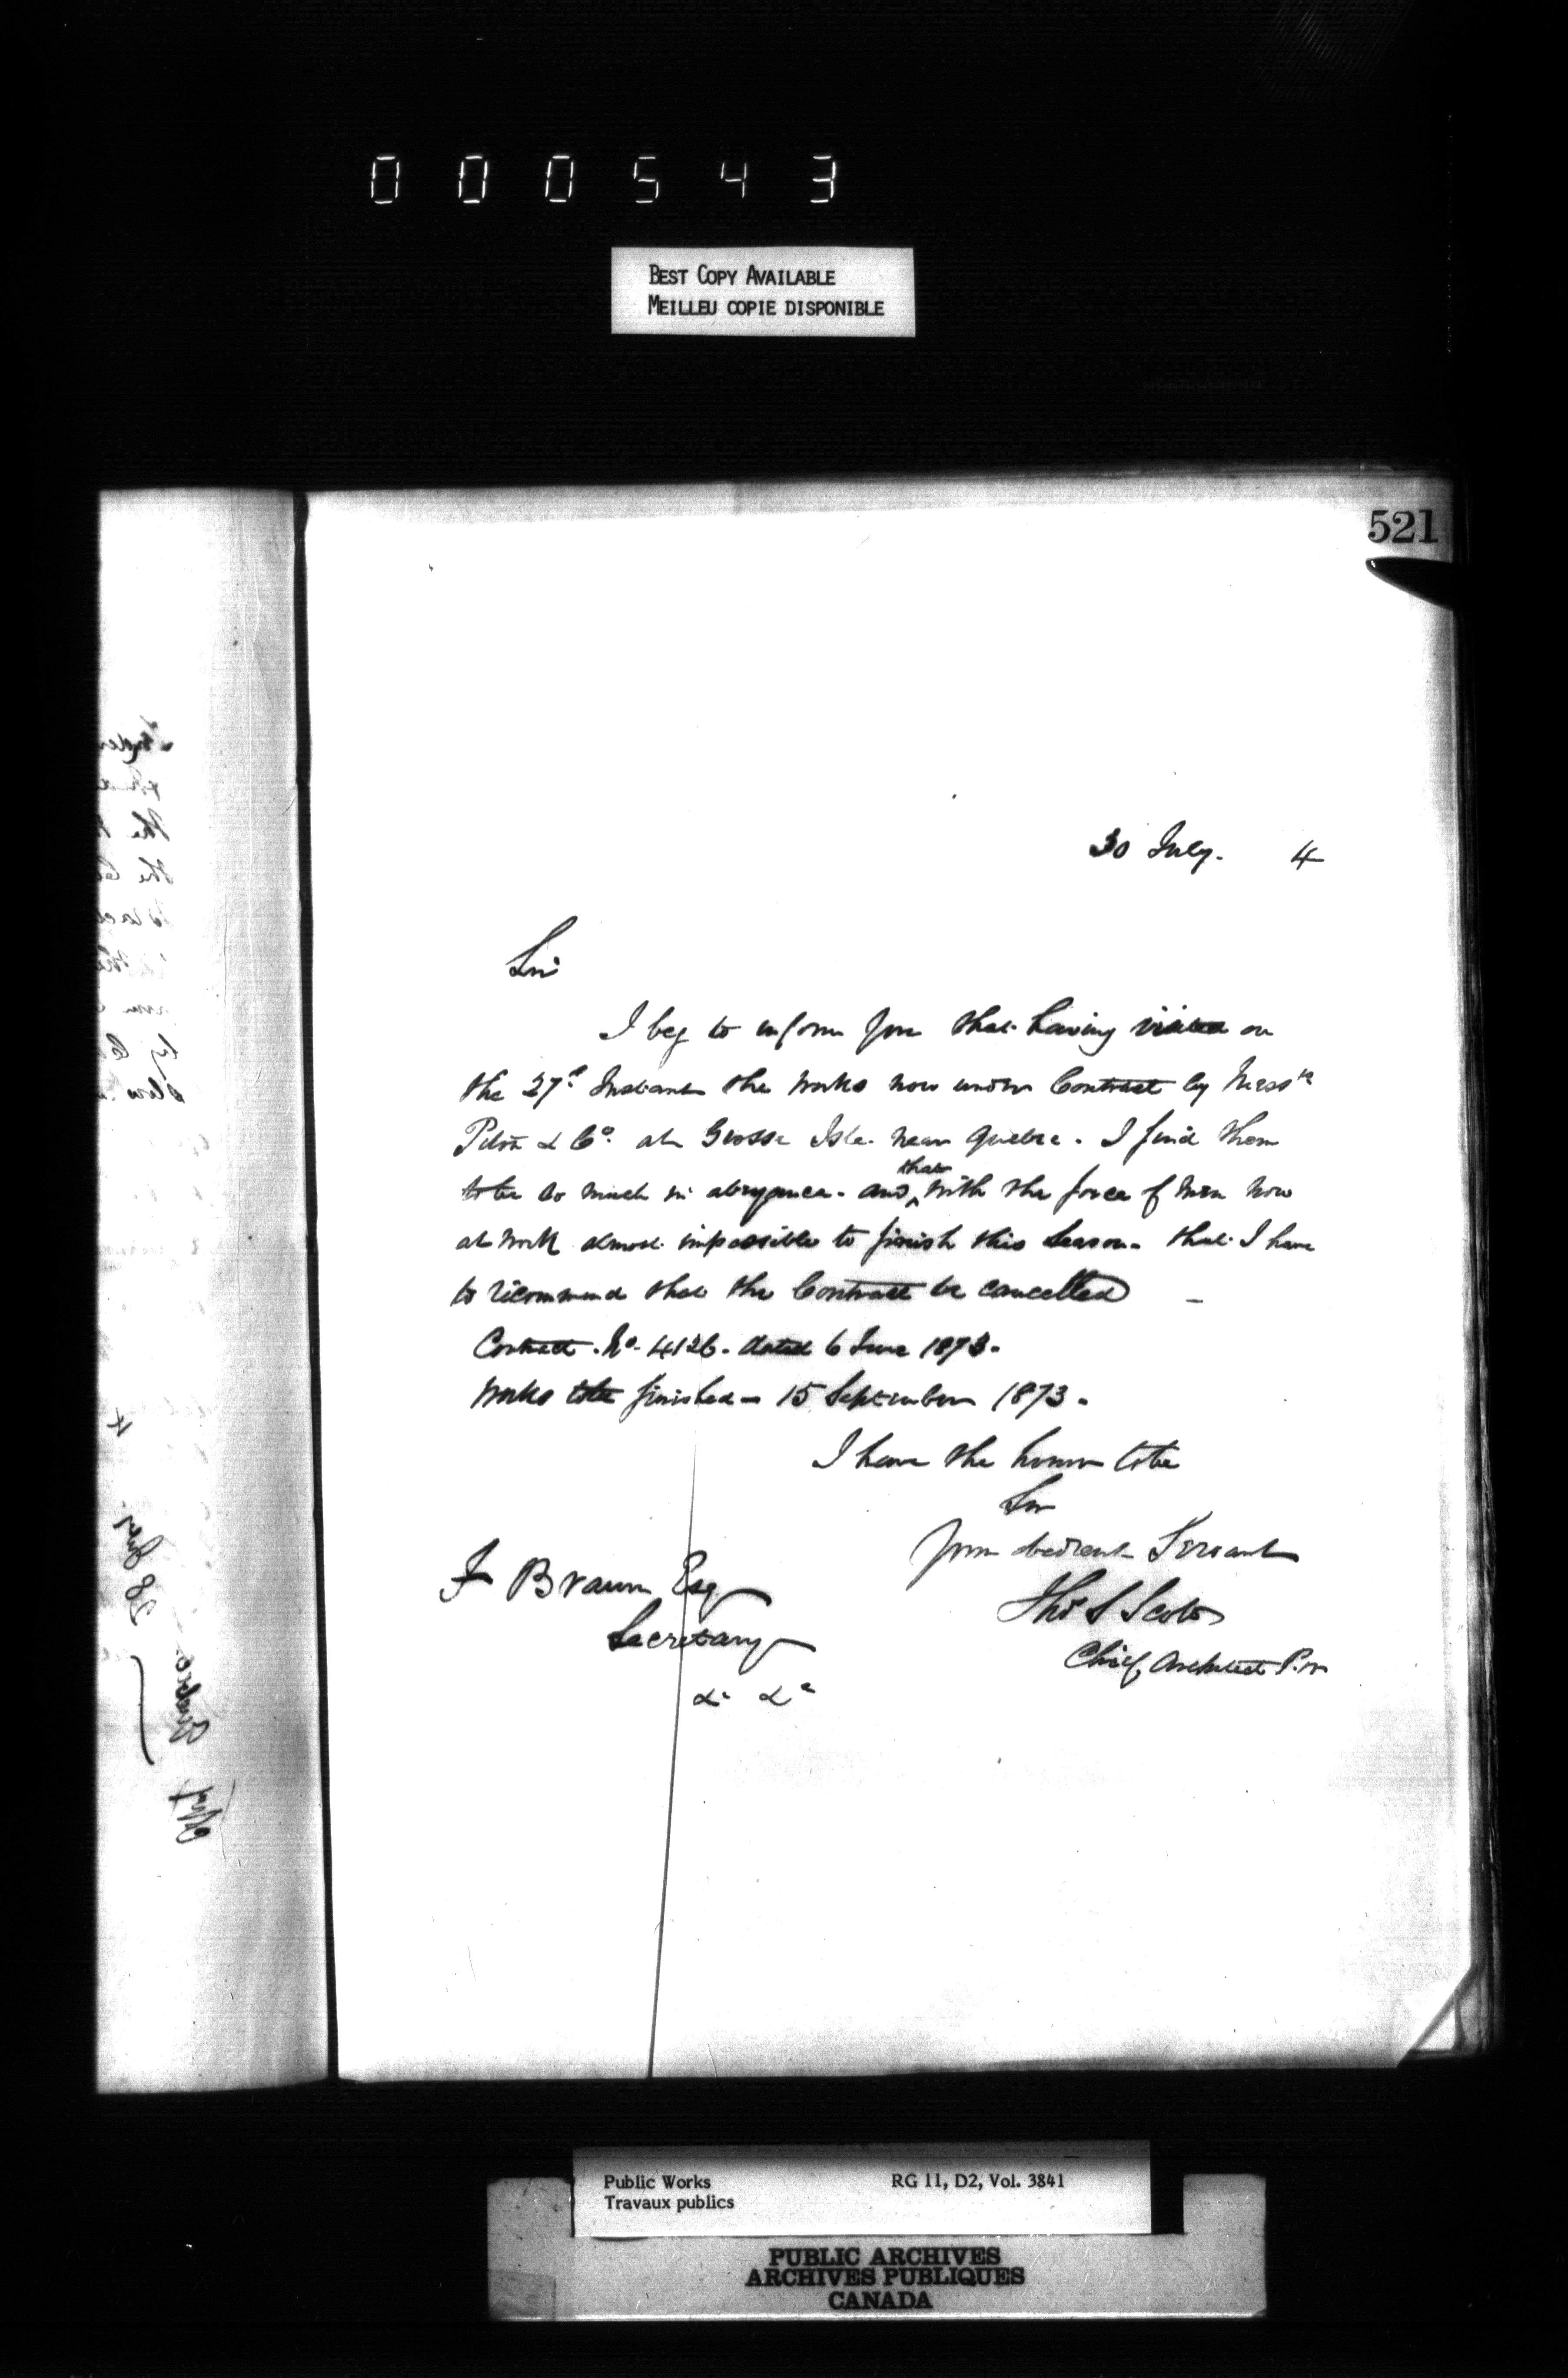 000543
BEST COPY AVAILABLE
MEILLEU COPIE DISPONIBLE
521
30 July. 4
Sir
I beg to inform you that having visited on
the 27th Instant the works now under Contract by Messrs
& Co. at Grosse Isle near Quebec. I find them
to be so much in abeyance. and that with the force of men now
at work almost impossible to finish this Season. that I have
to recommend that the Contract be cancelled
Contract. No. 4126. dated 6 June 1873.
Works to be finished 15 September 1873.
I have the honor to be
Sir
Your obedient Servant
Thos S Scott
Chief Architect P.W
F Braun Esq
Secretary
&c &c
Public Works RG 11, D2, Vol. 3841
Travaux publics
PUBLIC ARCHIVES
ARCHIVES PUBLIQUES
CANADA